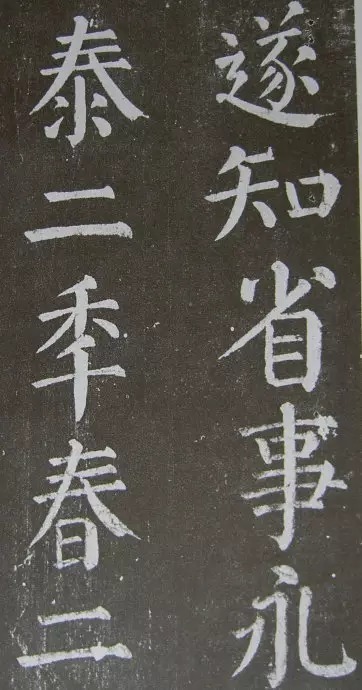 遂知省事永
泰二季春二